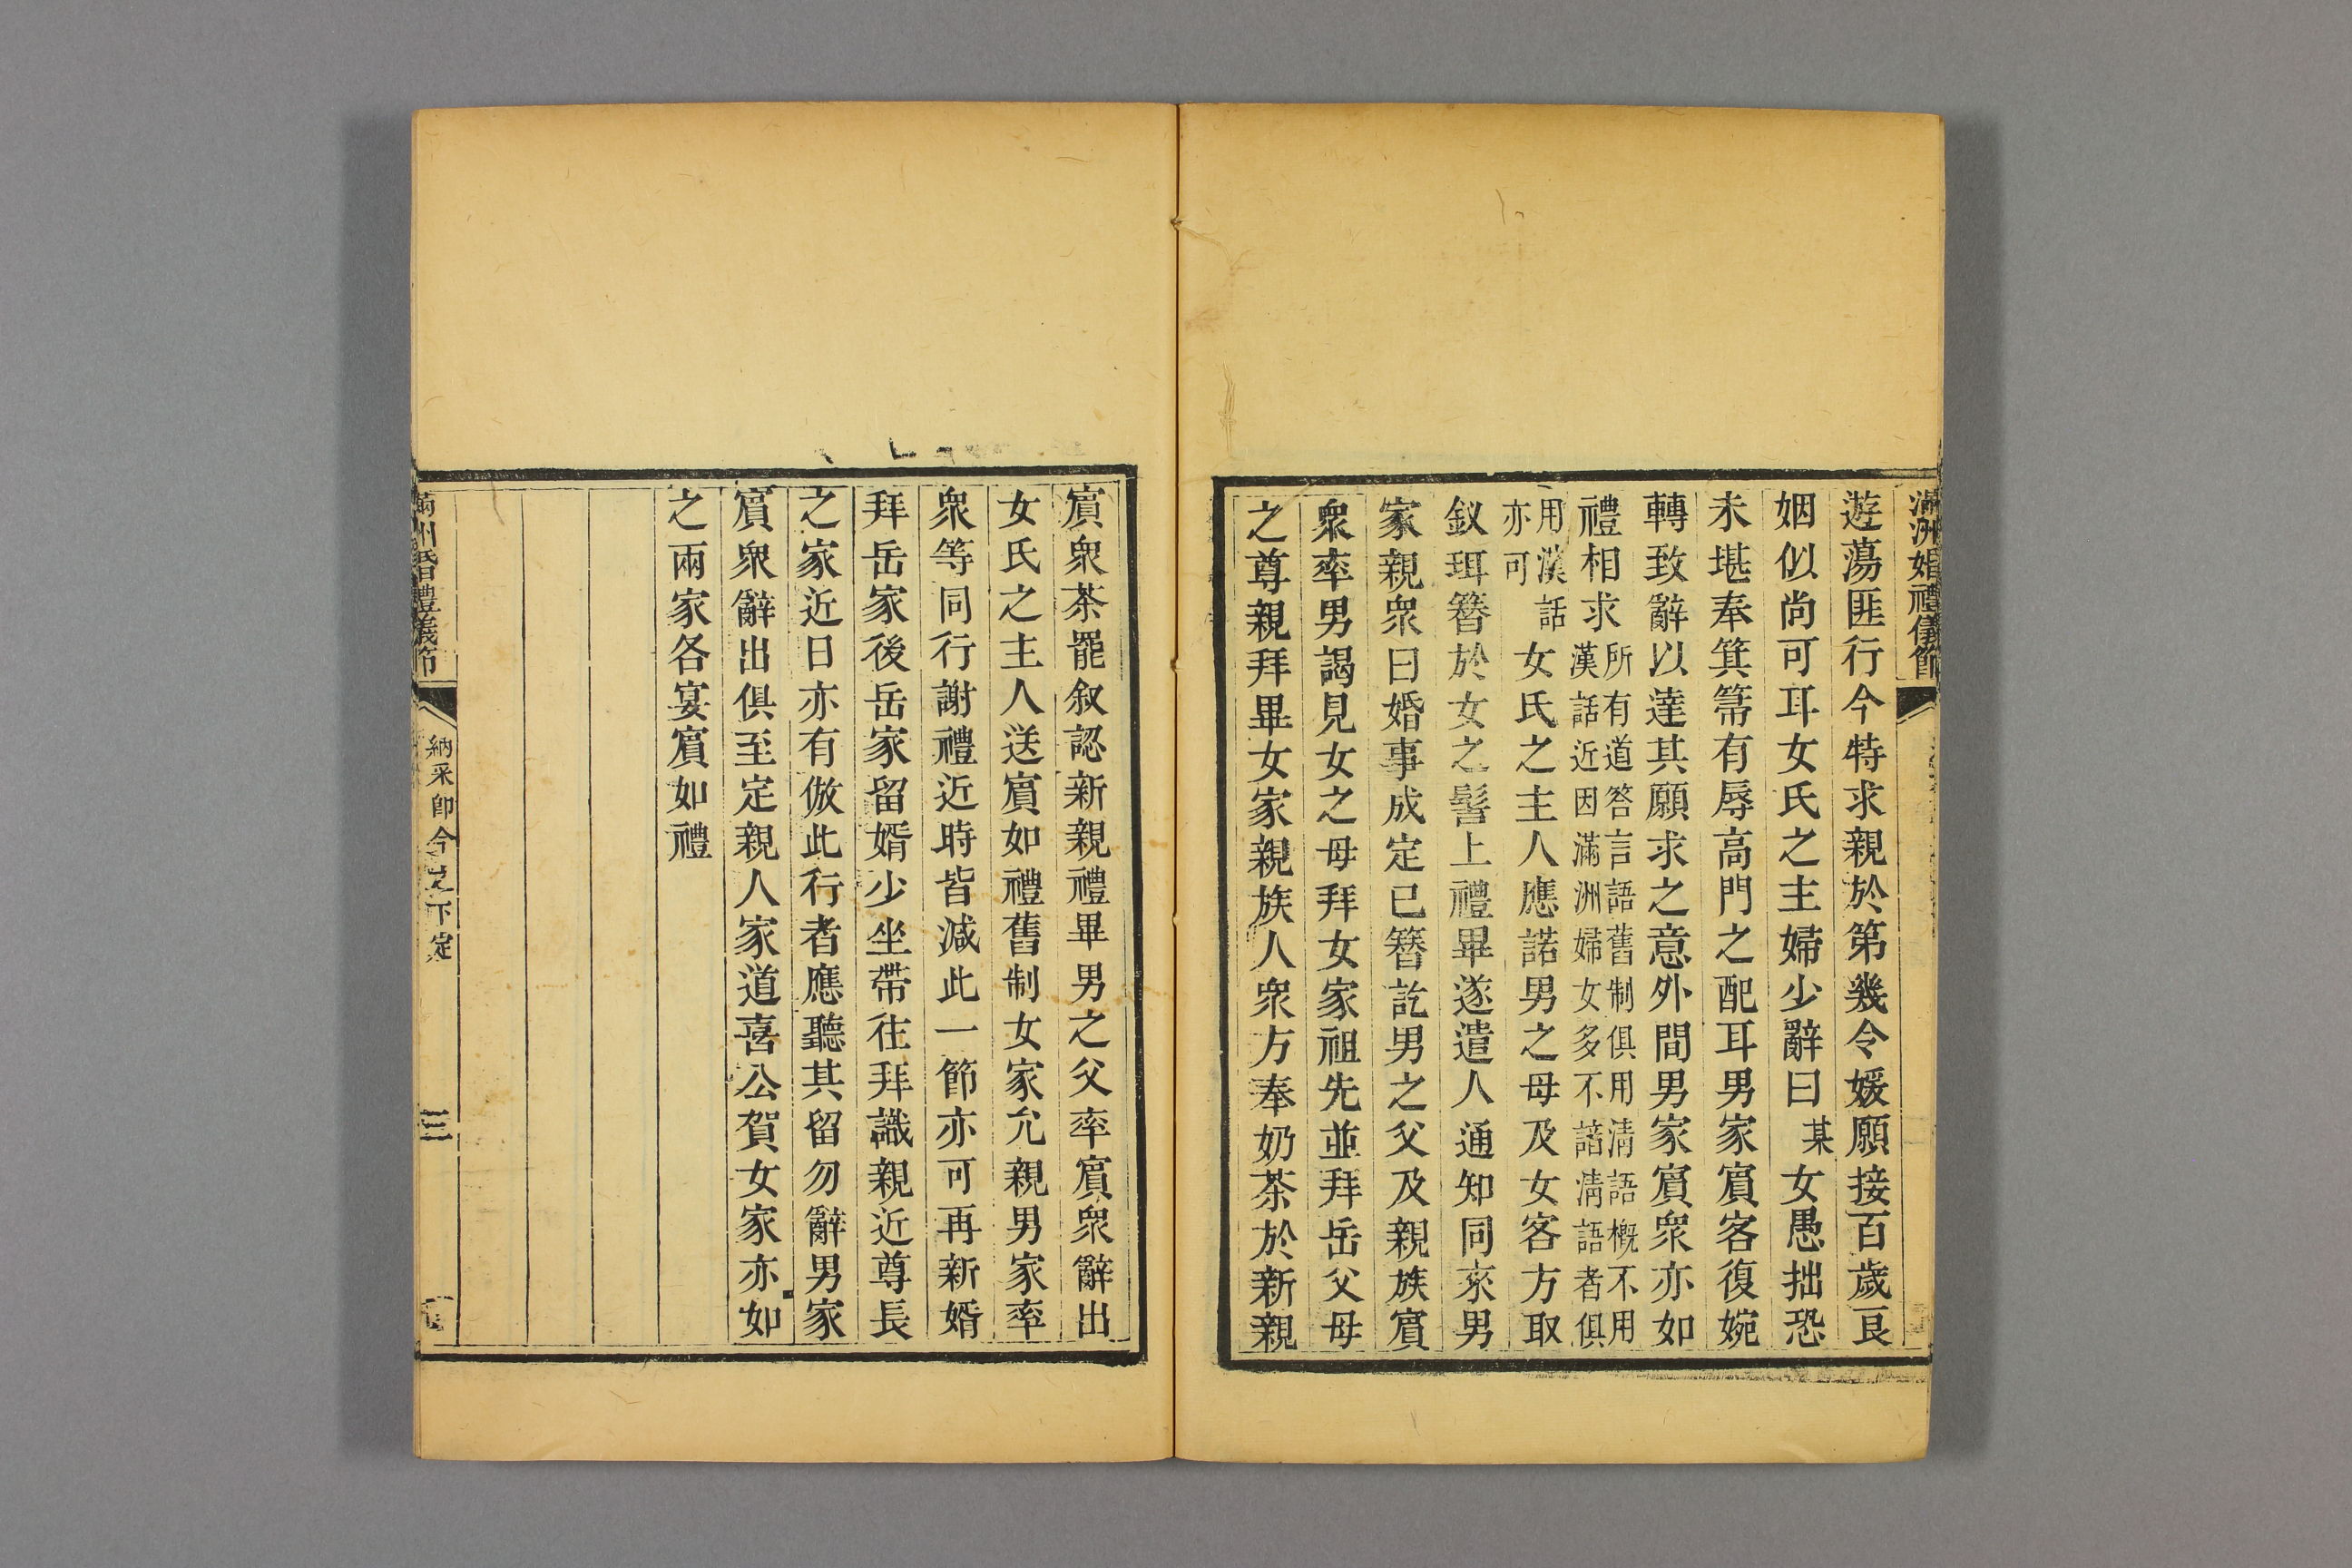 滿洲婚禮儀節
遊蕩匪行今特求親於第幾令媛願接百歲良
姻似尚可耳女氏之主婦少辭曰某女愚拙恐
未堪奉箕箒有辱高門之配耳男家賔客復婉
轉致辭以達其願求之意外間男家賔衆亦如
禮相求所有道答言語舊制俱用清語概不用
漢話近因滿洲婦女多不諳清語者俱
用漢話
亦可女氏之主人應諾男之母及女客方取
釵珥簪於女之髻上禮畢遂遣人通知同來男
家親衆曰婚事成定已簪訖男之父及親族賔
衆率男謁見女之母拜女家祖先並拜岳父母
之尊親拜畢女家親族人衆方奉奶茶於新親
賔衆茶罷叙認新親禮畢男之父率賔衆辭出
女氏之主人送賔如禮舊制女家允親男家率
衆等同行謝禮近時皆減此一節亦可再新婿
拜岳家後岳家留婿少坐帶往拜識親近尊長
之家近日亦有倣此行者應聽其留勿辭男家
賔衆辭出俱至定親人家道喜公賀女家亦如
之兩家各宴賔如禮
滿洲婚禮儀節
納采卽今之下定
三